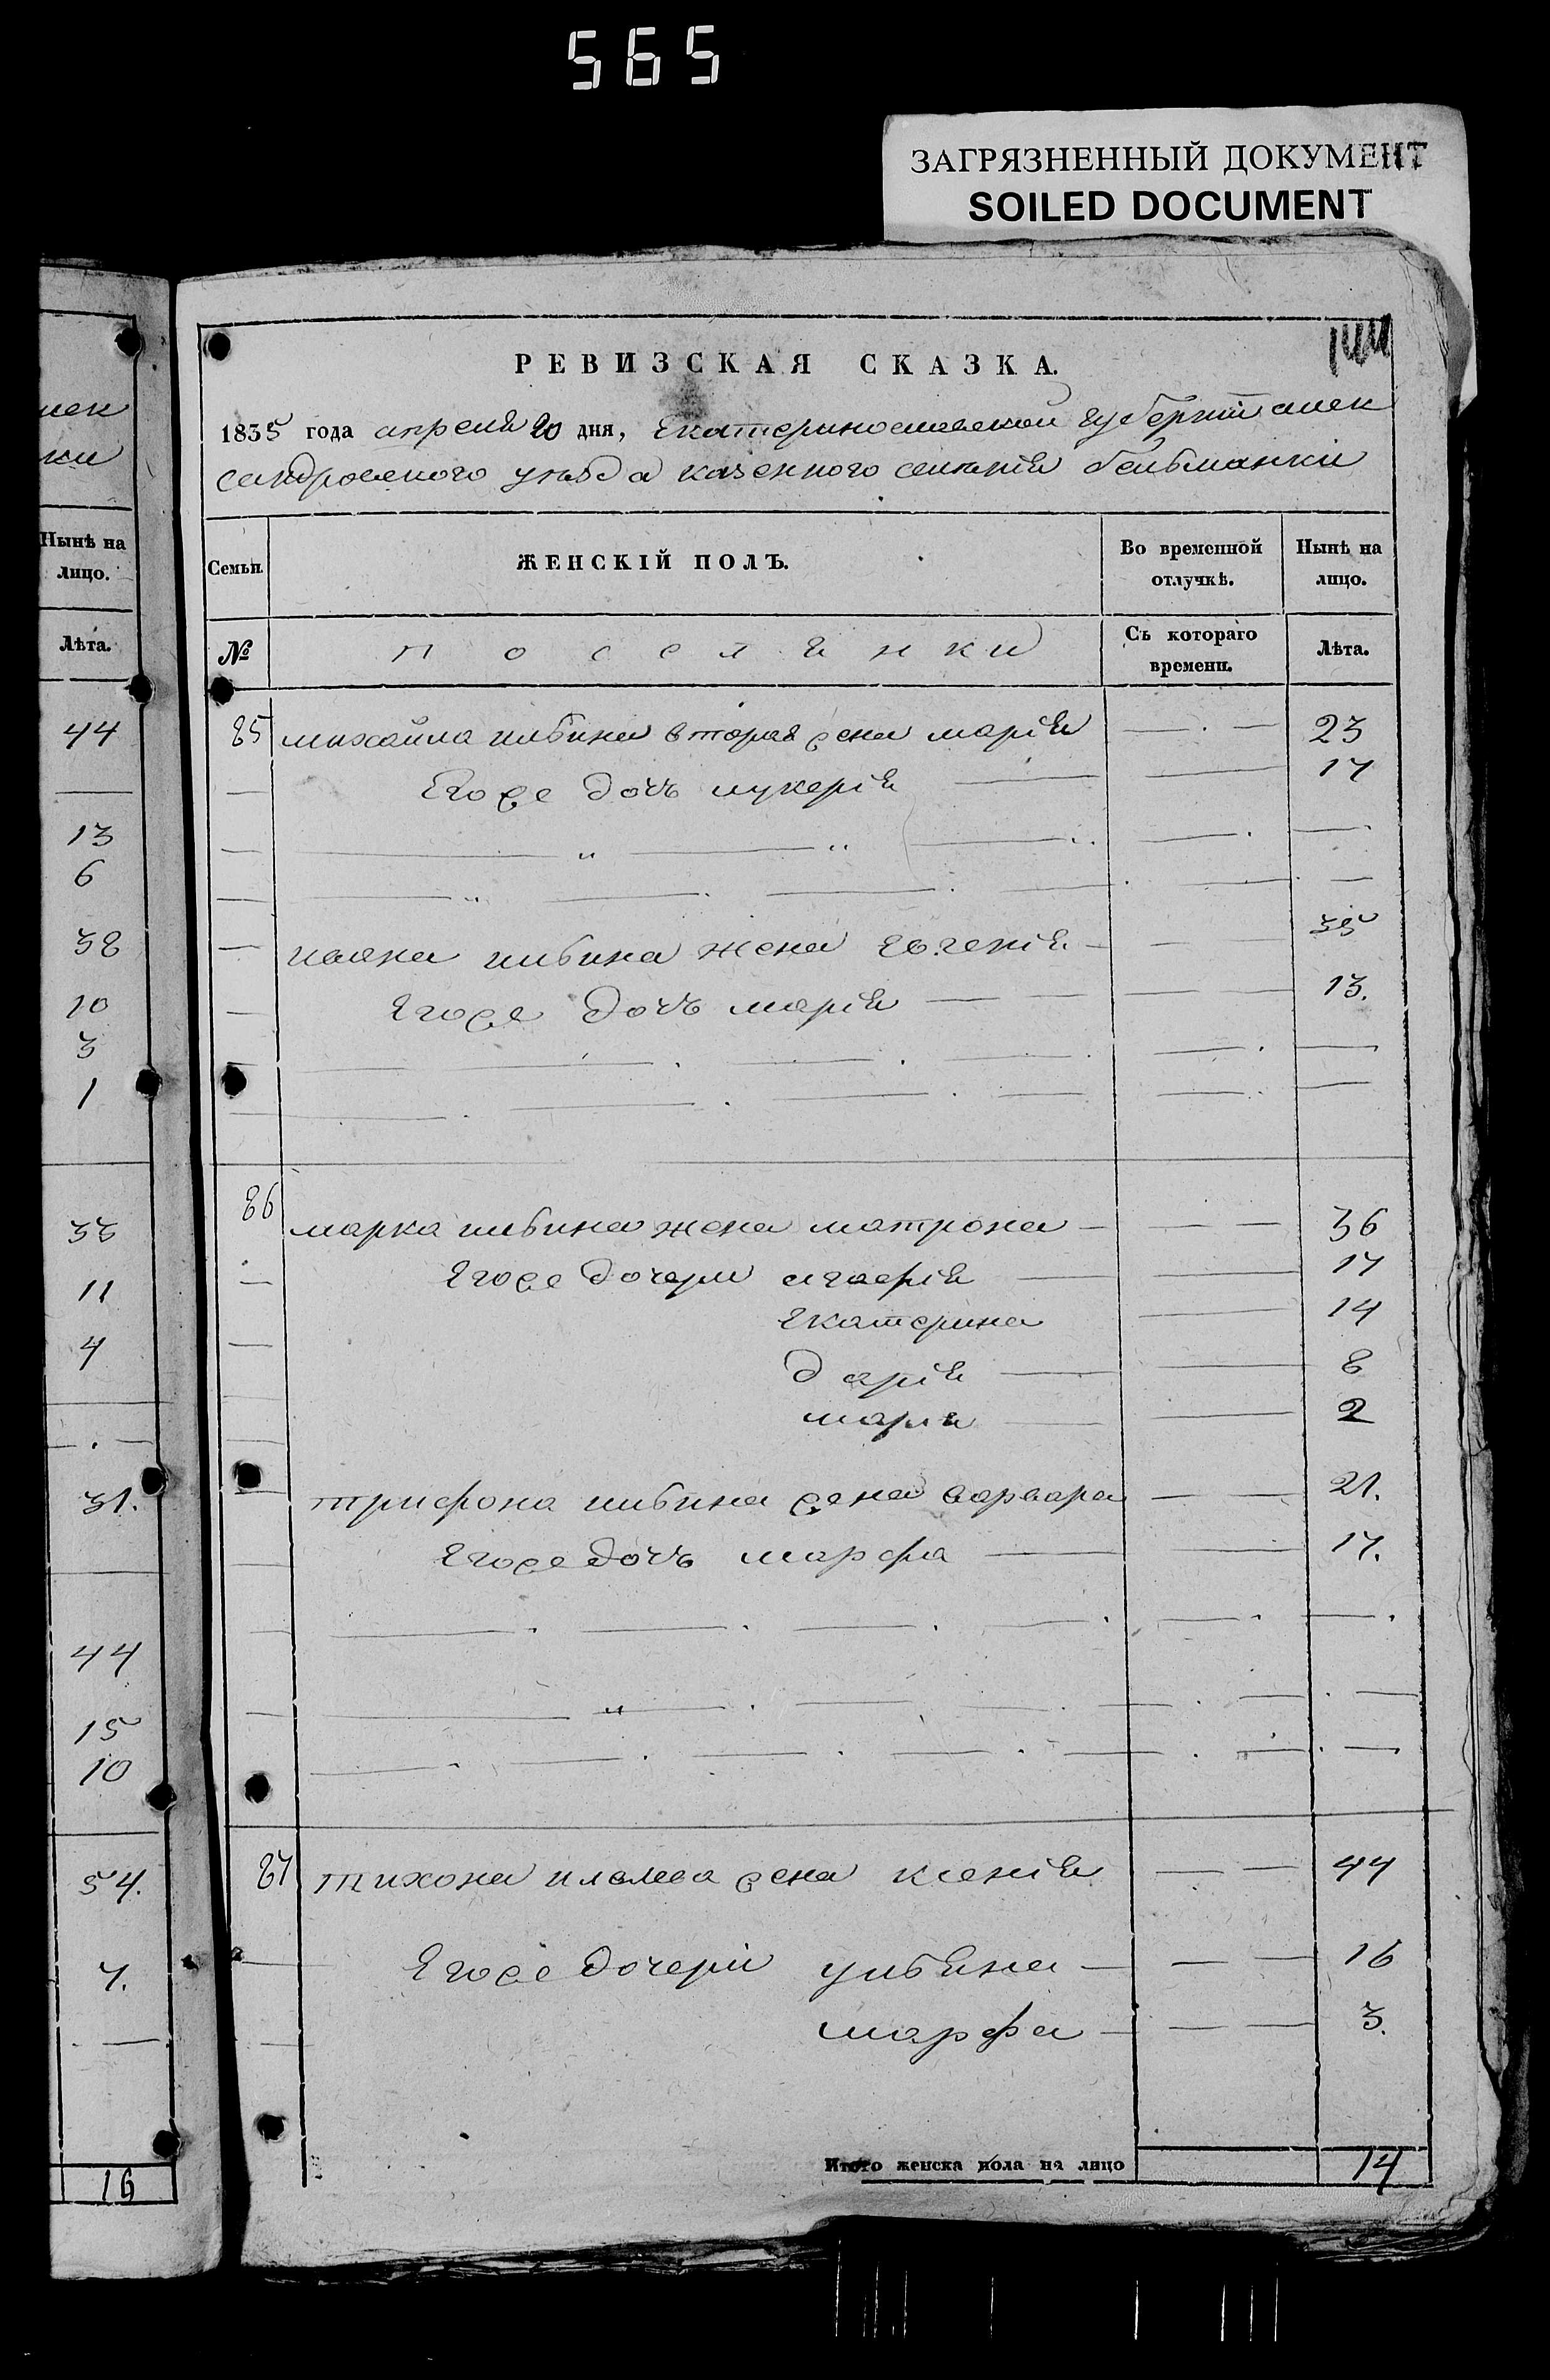 565
ЗАГРЯЗНЕННЫЙ ДОКУМЕНТ
SOILED DOCUMENT
144
РЕВИЗСКАЯ СКАЗКА.
1835 года апреля 20 дня, Екатеринославской губернии алек
сандровскаго уезда казенного селения бельманки
Семьи.
ЖЕНСКІЙ ПОЛЪ.
Во временной отлучкѣ.
Нынѣ на лицо.
№
поселянки
Съ котораго времени.
Лѣта.
85 михайла вторая жена марія 23
Егоже дочь лукерія 17
ивана жена евгенія 35
Егоже дочь марія 13.
86 марка жена матрона 36
Егоже дочери агафія 17
Екатерина 14
дарія 8
марія 2
трифона жена варвара 21.
Егоже дочь марфа 17.
87 тихона жена ксенія 44
Егоже дочери ульяна 16
марфа 3.
Итого женска пола на лицо 14
лек
ки
Нынѣ на
лицо.
Лѣта.
44
13
6
38
10
3
1
33
11
4
31.
44
15
10
54.
7.
16